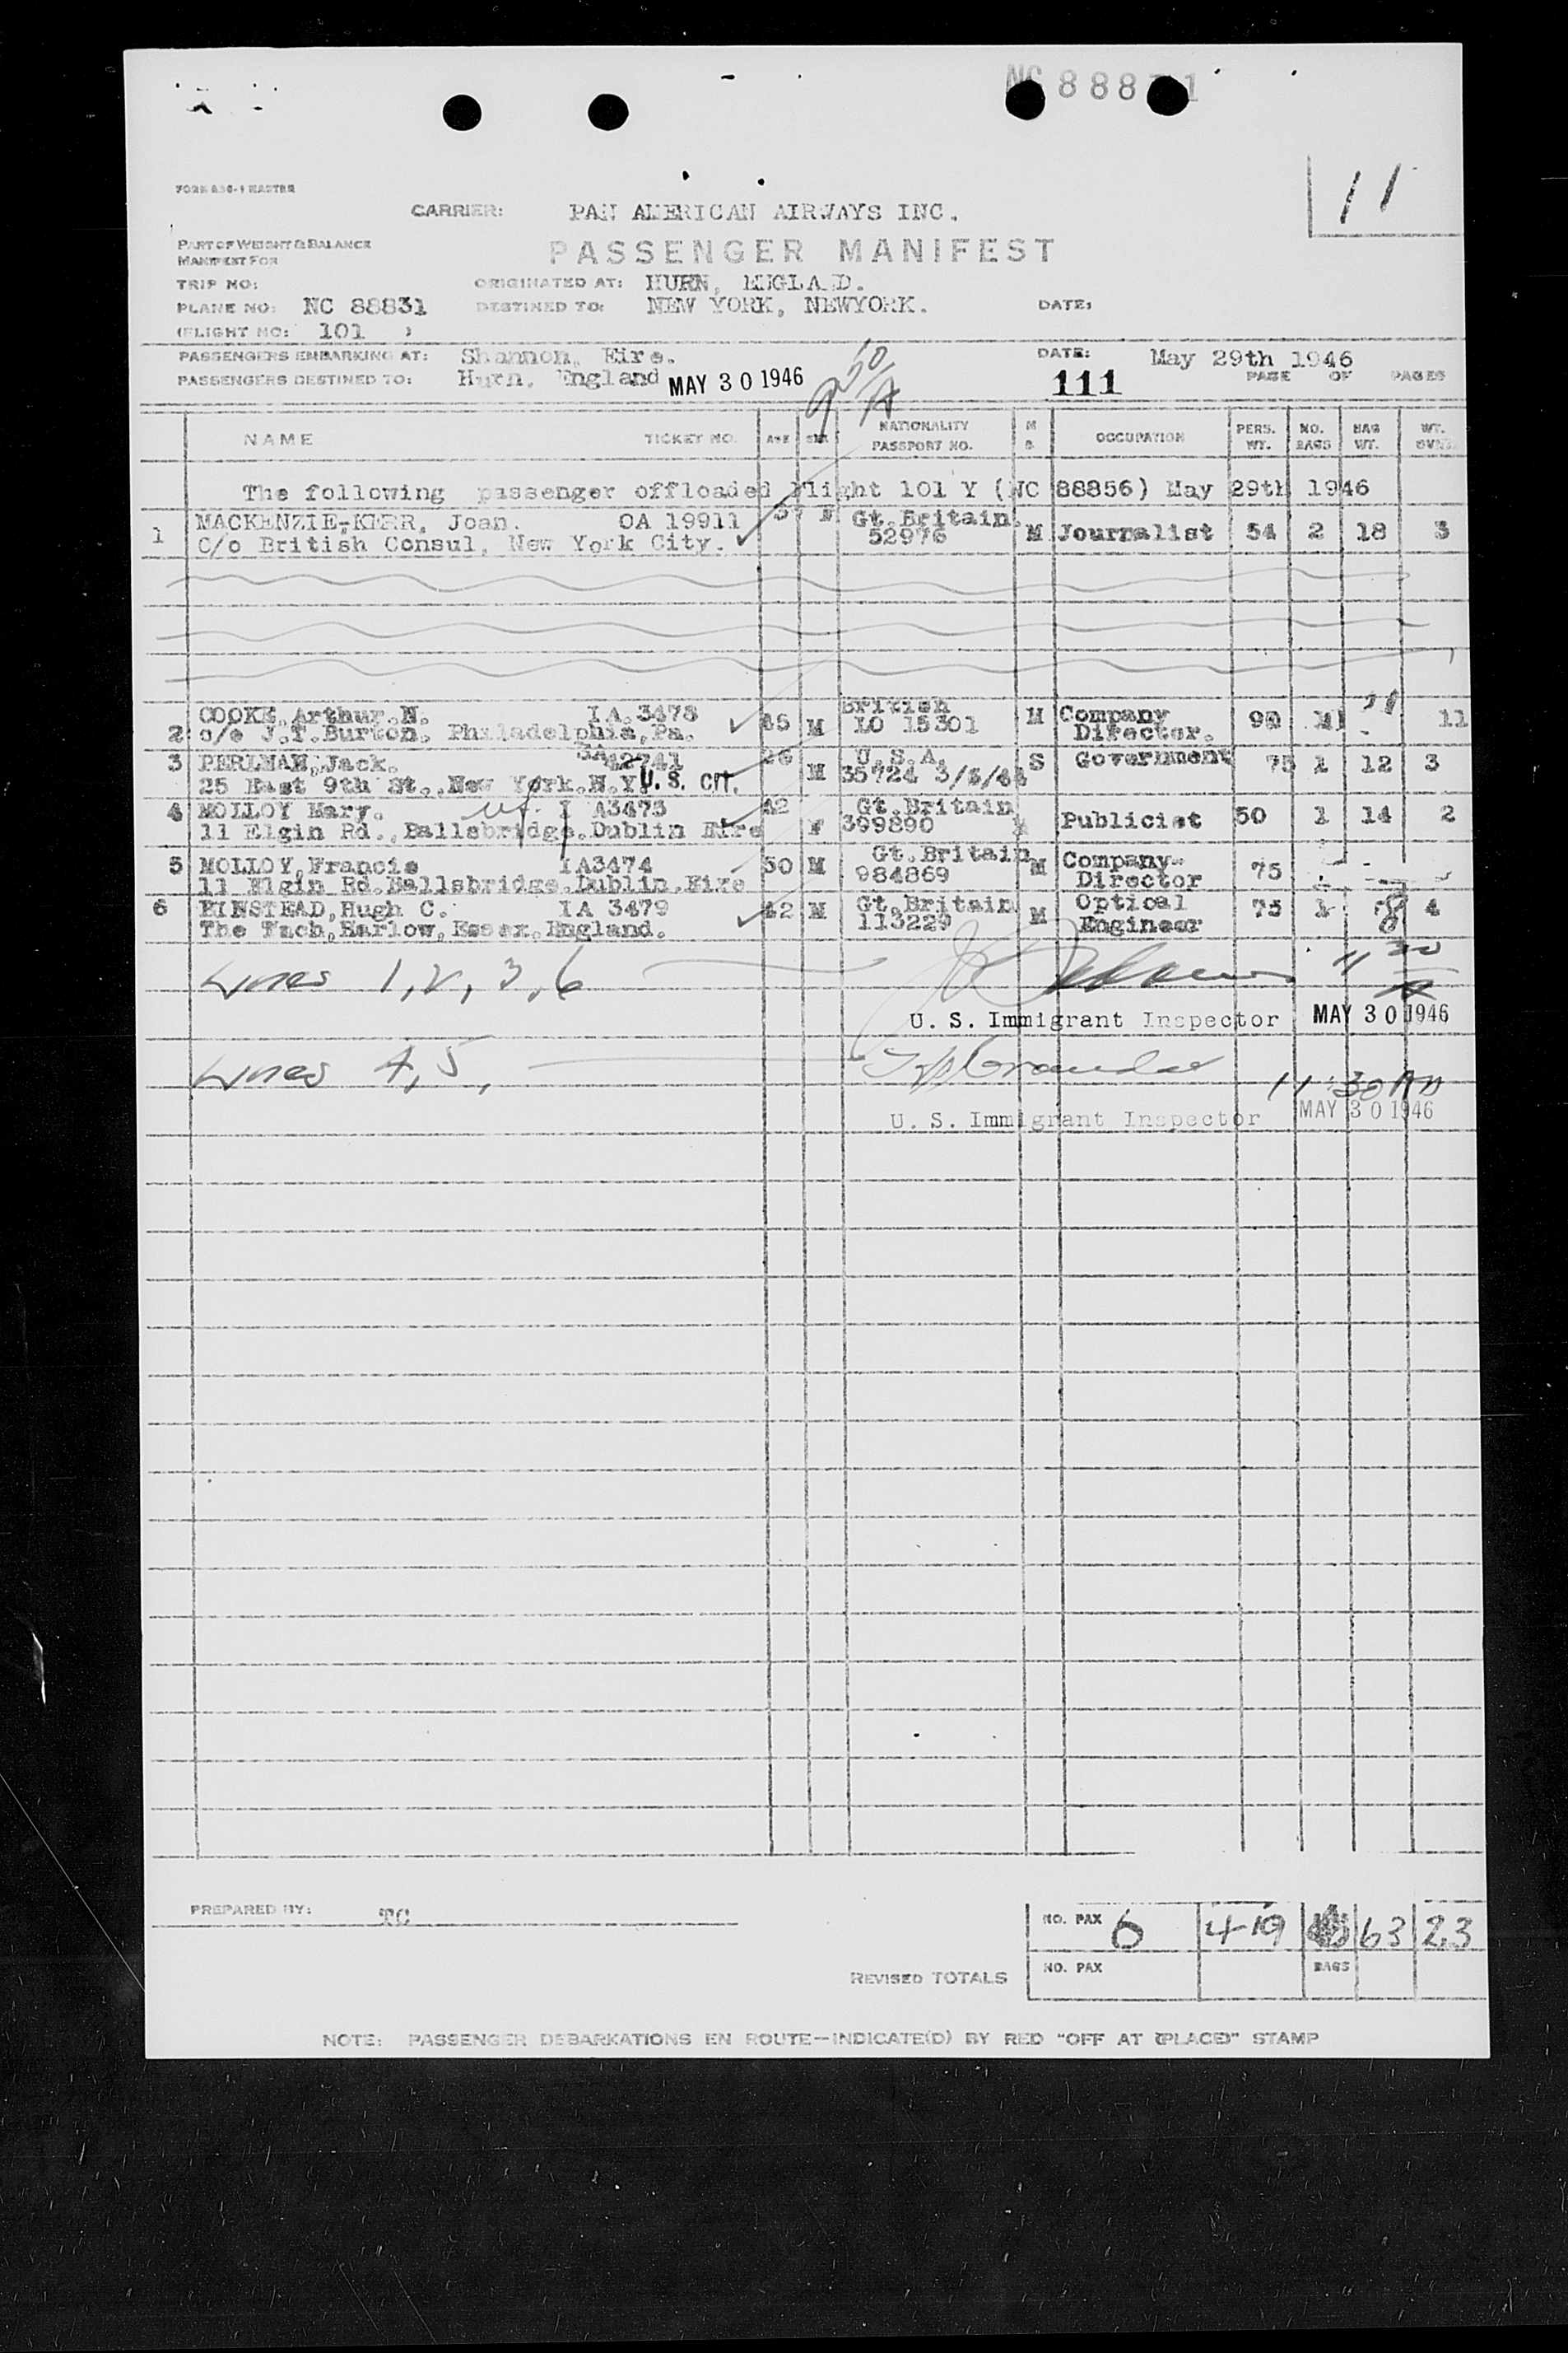 NC 888 1
11
FORM 830-1 MASTER
CARRIER: PAN AMERICAN AIRWAYS INC.
PART OF WEIGHT & BALANCE
MANIFEST FOR
PASSENGER MANIFEST
TRIP NO: ORIGINATED AT: HURN, ENGLA D.
PLANE NO: NC 88831 DESTINED TO: NEW YORK, NEWYORK. DATE:
(FLIGHT NO: 101 )
PASSENGERS EMBARKING AT: Shannon, Eire. DATE: May 29th 1946
PASSENGERS DESTINED TO: Hurn, England MAY 30 1946 111 PAGE OF PAGES
NAME TICKET NO. AGE SEX NATIONALITY PASSPORT NO. M S OCCUPATION PERS. WT. NO. BAGS BAG WT. WT. OVER
The following passenger offloaded Flight 101 Y (NC 88856) May 29th 1946
1 MACKENZIE-KERR, Joan. OA 19911 F Gt.Britain. M Journalist 54 2 18 3
C/o British Consul, New York City. 52976
2 COOKE, Arthur.N. IA.3478 M British M Company 90 11
c/o J.T.Burton. Philadelphia,Pa. LO 15301 Director.
3 PERLMAN, Jack. 3A 42741 26 M U.S.A. S Government 75 1 12 3
25 East 9th St.,New York.N.Y. U.S. CIT. 35724
4 MOLLOY Mary. I A3473 42 F Gt.Britain Publicist 50 1 14 2
11 Elgin Rd.,Ballsbridge.Dublin Eire 399890
5 MOLLOY, Francis IA3474 50 M Gt.Britain M Company- 75
11 Elgin Rd.Ballsbridge.Dublin.Eire 984869 Director
6 Hugh C. IA 3479 42 M Gt.Britain M Optical 75 1 8 4
Harlow, Essex, England. 113229 Engineer
Lines 1, 2, 3, 6 11 30 A
U. S. Immigrant Inspector MAY 30 1946
Lines 4, 5, 11:30 AM
U. S. Immigrant Inspector MAY 30 1946
PREPARED BY: TC NO. PAX 6 419 63 23
REVISED TOTALS NO. PAX BAGS
NOTE: PASSENGER DEBARKATIONS EN ROUTE—INDICATE(D) BY RED "OFF AT (PLACE)" STAMP